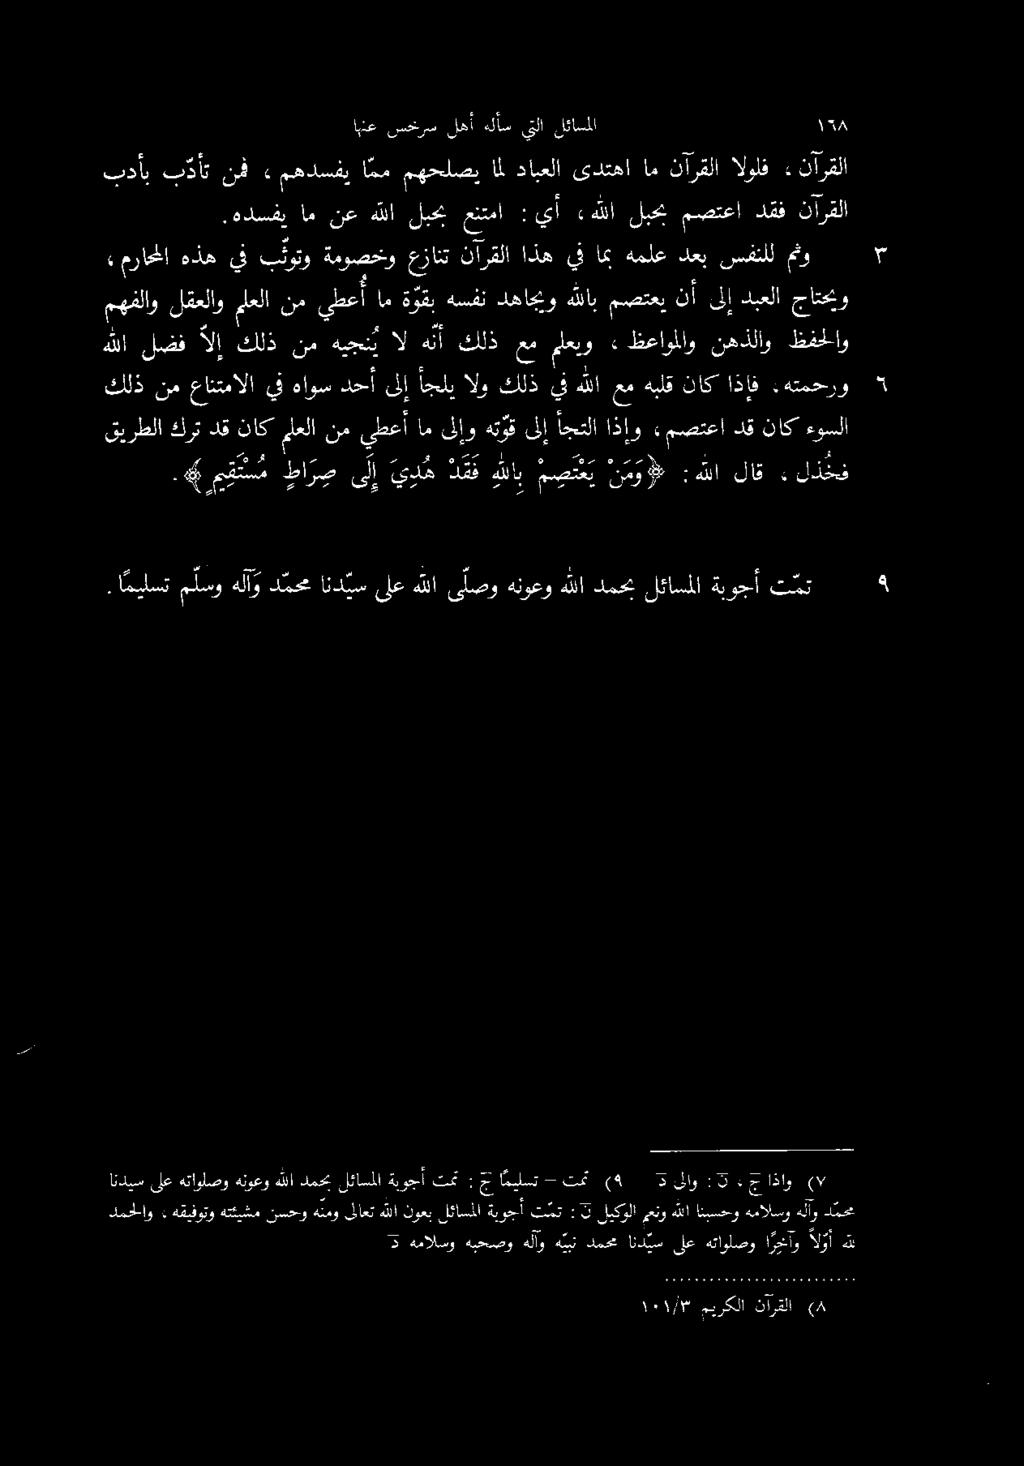 ١٦٨ المسائل التي سأله أهل سرخس عنها
القرآن ، فلولا القرآن ما اهتدى العباد لما يصلحهم ممّا يفسدهم ، فمن تأدّب بأدب
القرآن فقد اعتصم بحبل الله ، أي : امتنع بحبل الله عن ما يفسده .
٣ وثم للنفس بعد علمه بما في هذا القرآن تنازع وخصومة وتوثّب في هذه المحارم ،
ويحتاج العبد إلى أن يعتصم بالله ويجاهد نفسه بقوّة ما أُعطي من العلم والعقل والفهم
والحفظ والذهن والمواعظ ، ويعلم مع ذلك أنّه لا يُنجيه من ذلك إلاّ فضل الله
٦ ورحمته . فإذا كان قلبه مع الله في ذلك ولا يلجأ إلى أحد سواه في الامتناع من ذلك
السوء كان قد اعتصم ، وإذا التجأ إلى قوّته وإلى ما أعطي من العلم كان قد ترك الطريق
فخُذل ، قال الله : ﴿وَمَنْ يَعْتَصِمْ بِاللهِ فَقَدْ هُدِيَ إِلَى صِرَاطٍ مُسْتَقِيمٍ﴾ .
٩ تمّت أجوبة المسائل بحمد الله وعونه وصلّى الله على سيّدنا محمّد وآله وسلّم تسليمًا .
٧) وإذا ج ، ن : والى د ٩) تمت – تسليمًا ج : تمت أجوبة المسائل بحمد الله وعونه وصلواته على سيدنا
محمّد وآله وسلامه وحسبنا الله ونعم الوكيل ن : تمّت أجوبة المسائل بعون الله تعالى ومنّه وحسن مشيئته وتوفيقه ، والحمد
لله أوّلاً وآخِرًا وصلواته على سيّدنا محمد نبيّه وآله وصحبه وسلامه د
٨) القرآن الكريم ١٠١/٣